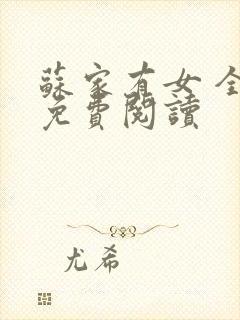 蘇家有女 全
免費閱讀
尤希